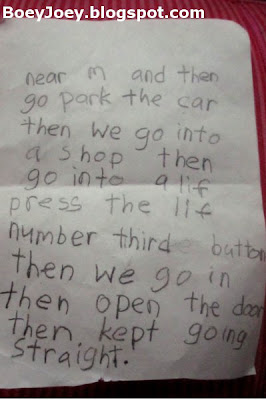 BoeyJoey.blogspot.com
near m and then
go park the car
then we go into
a shop then
go into a lif
press the lif
number third button
then we go in
then open the door
then kept going
straight.